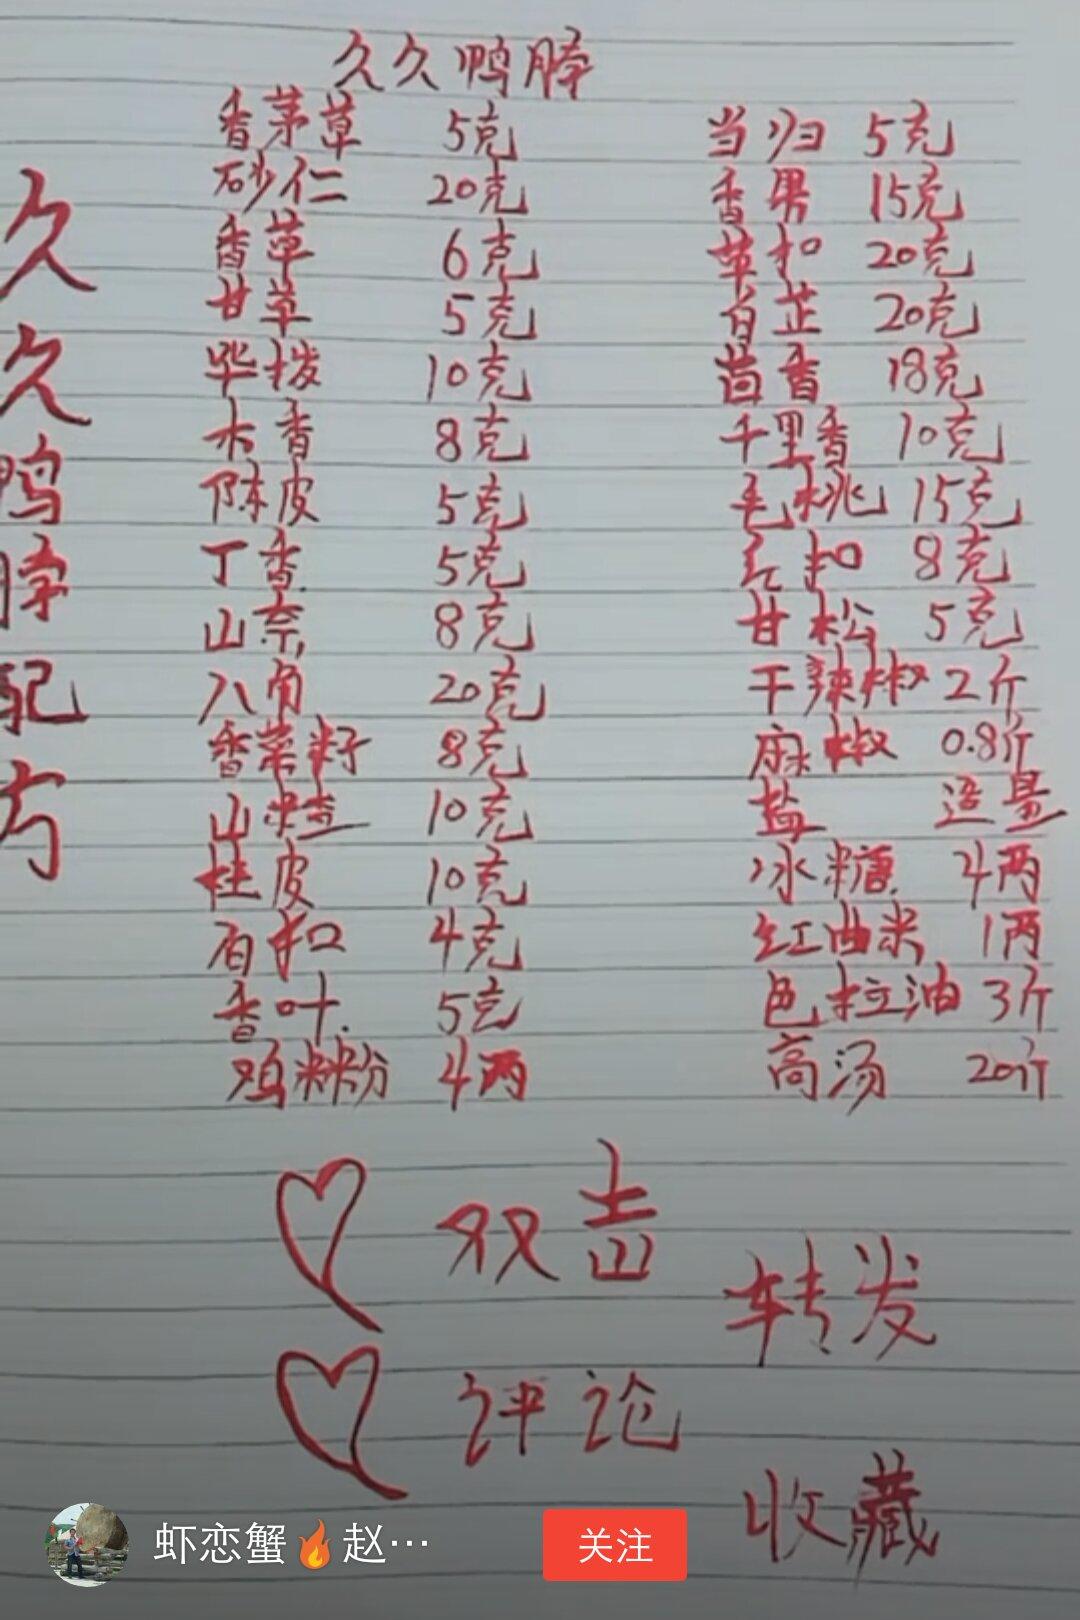 久久鸭脖
香茅草 5克 当归 5克
砂仁 20克 香果 15克
香草 6克 草扣 20克
甘草 5克 白芷 20克
毕拨 10克 茴香 18克
木香 8克 千里香 10克
陈皮 5克 毛桃 15克
丁香 5克 扣 8克
山奈 8克 甘松 5克
八角 20克 干辣椒 2斤
香菜籽 8克 麻椒 0.8斤
山楂 10克 盐 适量
桂皮 10克 冰糖 4两
百扣 4克 红曲米 1两
香叶 5克 色拉油 3斤
鸡精粉 4两 高汤 20斤
久久鸭脖配方
双击
转发
评论
收藏
虾恋蟹🔥赵…
关注